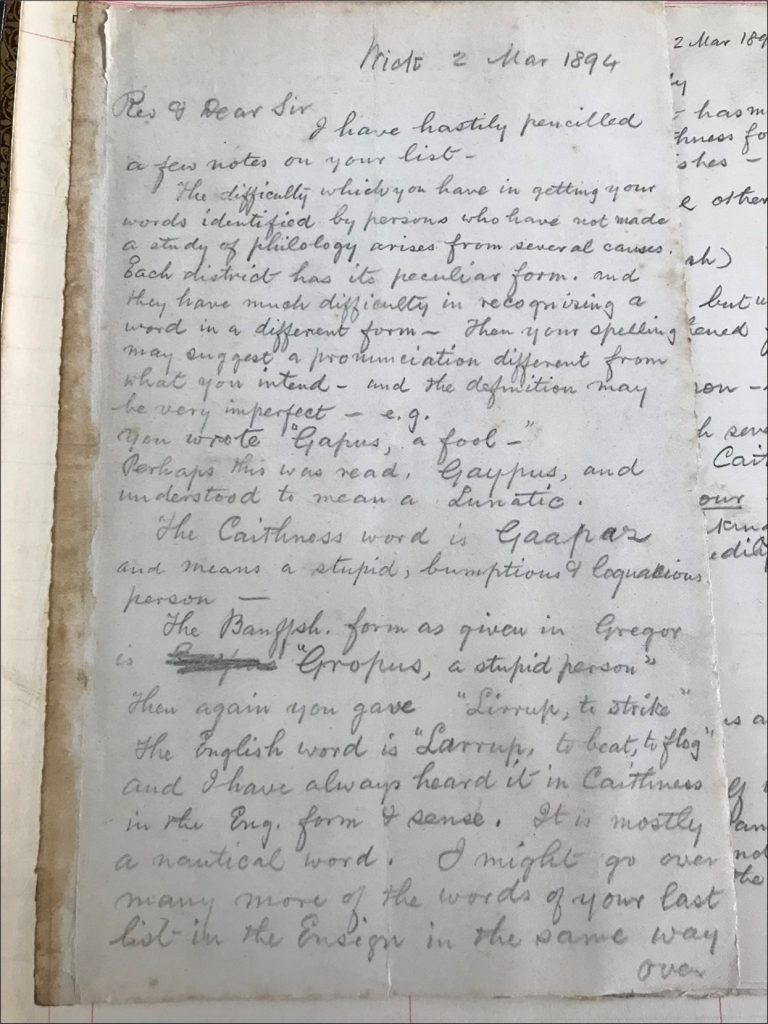 Wick 2 Mar 1894
Rev & Dear Sir
I have hastily pencilled
a few notes on your list –
The difficulty which you have in getting your
words identified by persons who have not made
a study of philology arises from several causes.
Each district has its peculiar form. and
they have much difficulty in recognising a
word in a different form – Then your spelling
may suggest a pronunciation different from
what you intend – and the definition may
be very imperfect – e.g.
You wrote "Gapus, a fool –"
Perhaps this was read, Gaypus, and
understood to mean a Lunatic.
The Caithness word is Gaapaz
and means a stupid, bumptious & loquacious
person —
The Banffsh. form as given in Gregor
is "Gropus, a stupid person"
Then again you gave "Lirrup, to strike"
The English word is "Larrup, to beat, to flog"
and I have always heard it in Caithness
in the Eng. form & sense. It is mostly
a nautical word. I might go over
many more of the words of your last
list in the Ensign in the same way
over
2 Mar 189
has m
other
sh)
but
Cait
our